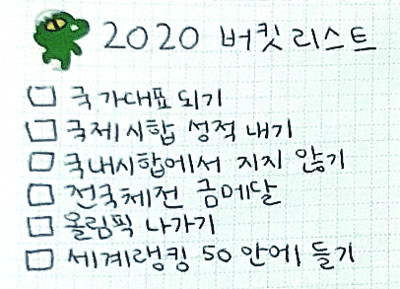 2020 버킷리스트
국가대표 되기
국제시합 성적 내기
국내시합에서 지지 않기
전국체전 금메달
올림픽 나가기
세계랭킹 50 안에 들기